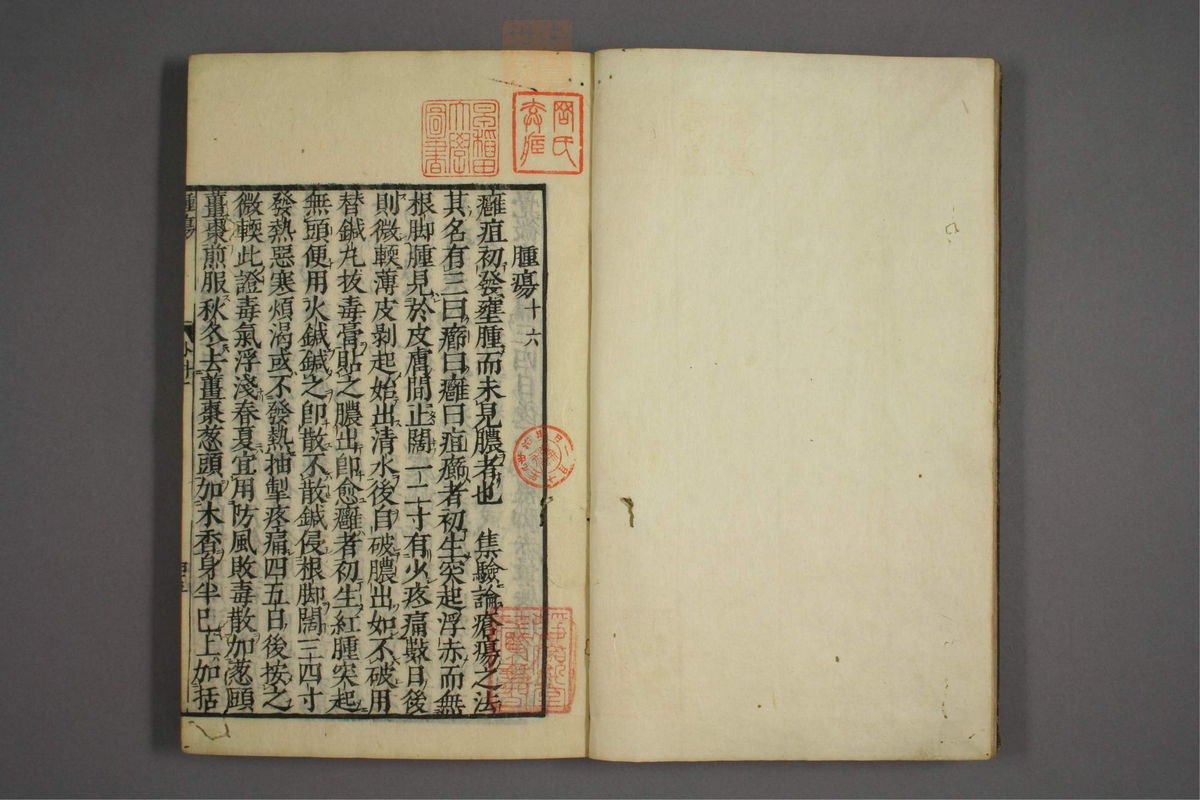 腫瘍十六
癰疽初發壅腫而未見膿者也 集驗論瘡瘍之法
其名有三曰癤曰癰曰疽癤者初生突起浮赤而無
根脚腫見於皮膚間止闊一二寸有少疼痛數日後
則微軟薄皮剥起始出清水後自破膿出如不破用
替鍼丸抜毒膏貼之膿出即愈癰者初生紅腫突起
無頭便用火鍼鍼之即散不散鍼侵根脚闊三四寸
發熱惡寒煩渴或不發熱抽掣疼痛四五日後按之
微輭此證毒氣浮淺春夏宜用防風敗毒散加葱頭
薑棗煎服秋冬去薑棗葱頭加木香身半已上加括
腫瘍
早稲田大學圖書